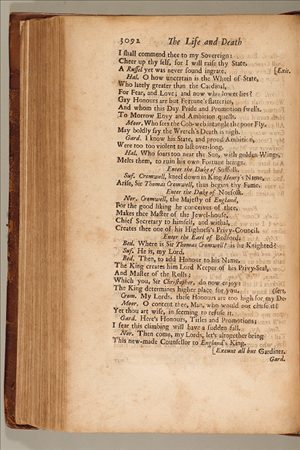 3092 The Life and Death
I shall commend thee to my Sovereign:
Cheer up thy self, for I will raise thy State.
A Russel yet was never found ingrate. [Exit.
Hal. O how uncertain is the Wheel of State,
Who lately greater than the Cardinal,
For Fear, and Love; and now who lower lies?
Gay Honours are but Fortune's flatteries,
And whom this Day Pride and Promotion swells,
To Morrow Envy and Ambition quells.
Moor. Who sees the Cob-web intangle the poor Fly,
May boldly say the Wretch's Death is nigh.
Gard. I know his State, and proud Ambition,
Were too too violent to last over-long.
Hal. Who soars too near the Sun, with golden Wings,
Melts them, to ruin his own Fortune brings.
Enter the Duke of Suffolk.
Suf. Cromwell, kneel down in King Henry's Name,
Arise, Sir Thomas Cromwell, thus begins thy Fame.
Enter the Duke of Norfolk.
Nor. Cromwell, the Majesty of England,
For the good liking he conceives of thee,
Makes thee Master of the Jewel-house,
Chief Secretary to himself, and withal,
Creates thee one of his Highness's Privy-Council.
Enter the Earl of Bedford.
Bed. Where is Sir Thomas Cromwell? is he Knighted?
Suf. He is, my Lord.
Bed. Then, to add Honour to his Name,
The King creates him Lord Keeper of his Privy-Seal,
And Master of the Rolls;
Which you, Sir Christopher, do now enjoy;
The King determines higher place for you. (sert.
Crom. My Lords, these Honours are too high for my De-
Moor. O content thee, Man, who would not chuse it?
Yet thou art wise, in seeming to refuse it.
Gard. Here's Honours, Titles and Promotions;
I fear this climbing will have a sudden fall.
Nor. Then come, my Lords, let's altogether bring
This new-made Counsellor to England's King.
[Exeunt all but Gardiner.
Gard.